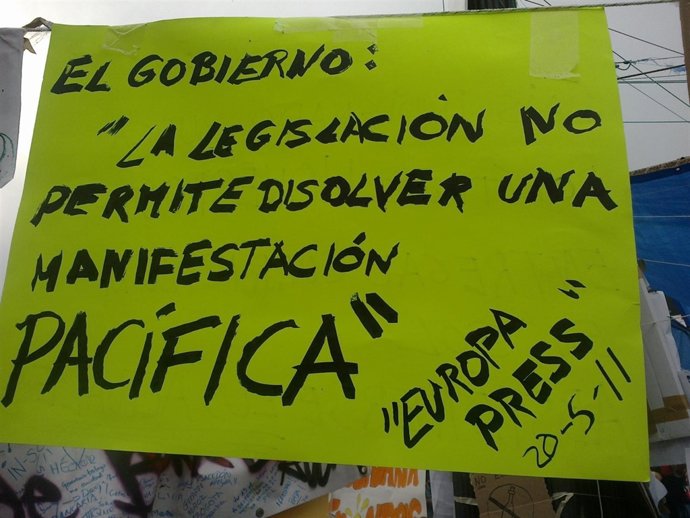 EL GOBIERNO:
"LA LEGISLACIÓN NO
PERMITE DISOLVER UNA
MANIFESTACIÓN
PACÍFICA"
"EUROPA
PRESS"
20-5-11